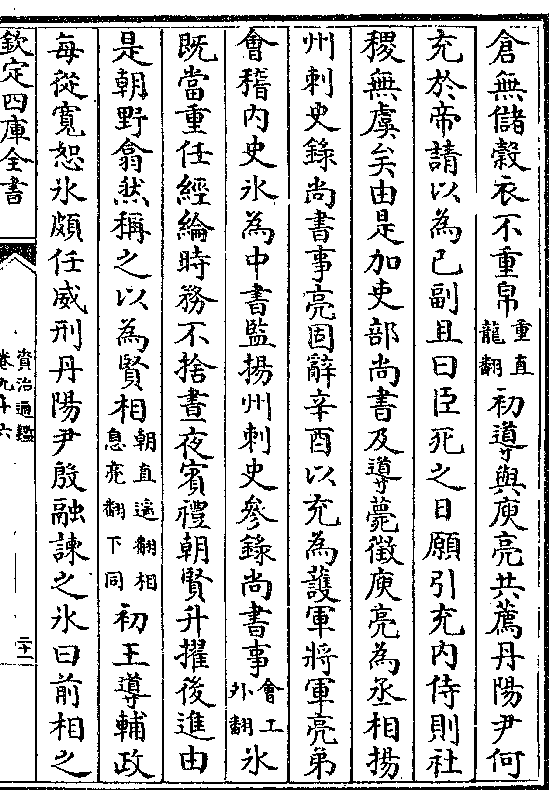 倉無儲穀衣不重帛重直龍翻初導與庾亮共薦丹陽尹何
充於帝請以為己副且曰臣死之日願引充内侍則社
稷無虞矣由是加吏部尚書及導薨徵庾亮為丞相揚
州刺史錄尚書事亮固辭辛酉以充為護軍將軍亮弟
會稽内史氷為中書監揚州刺史參錄尚書事會工外翻氷
既當重任經綸時務不捨晝夜賓禮朝賢升擢後進由
是朝野翕然稱之以為賢相朝直遥翻相息亮翻下同初王導輔政
每從寛恕氷頗任威刑丹陽尹殷融諫之氷曰前相之
欽定四庫全書
資治通鑑
卷九十六
二十一